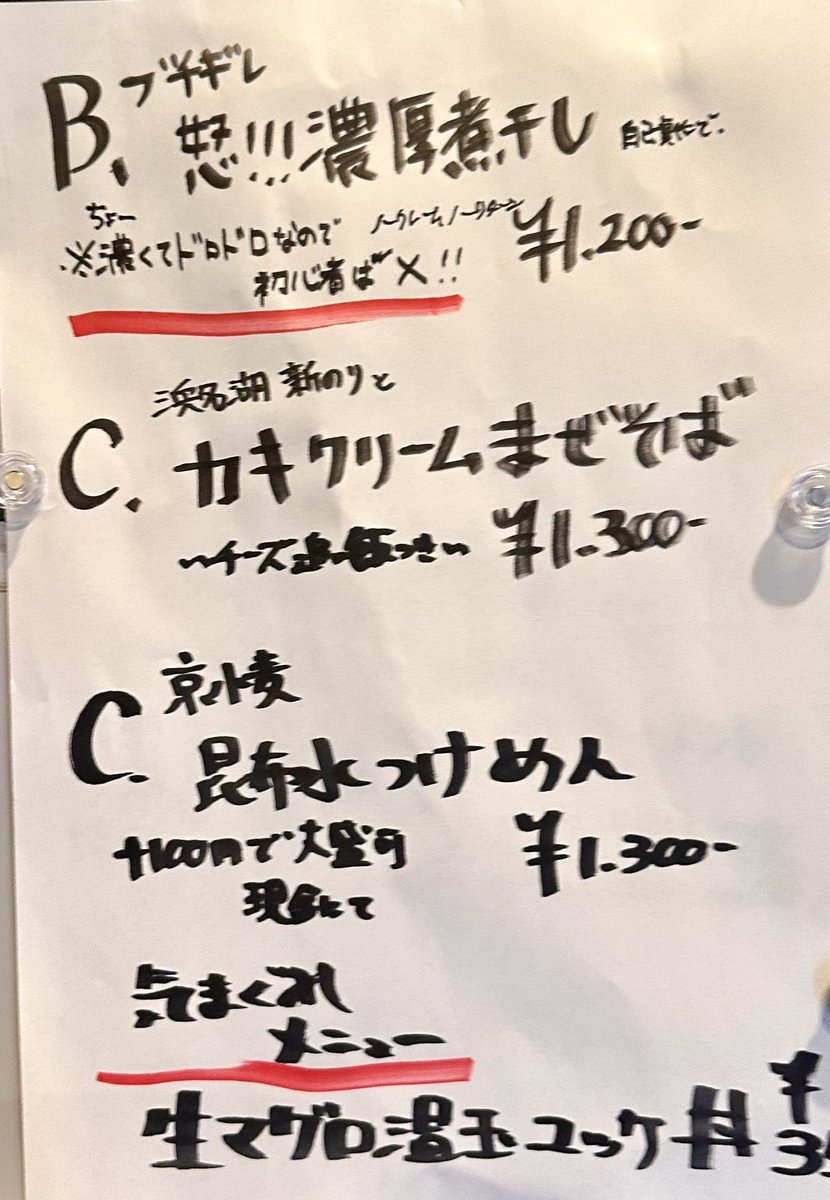 B. ブチギレ
怒!!!濃厚煮干し 自己責任で.
ちょー
※濃くてドロドロなので ノークレームノーリターン ¥1.200-
初心者は×!!
浜名湖 新のりと
C. カキクリームまぜそば
チーズ追い飯つき ¥1.300-
京小麦
C. 昆布水つけめん
+100円で大盛可 ¥1.300-
現金にて
気まぐれ
メニュー
生マグロ温玉ユッケ丼 ¥